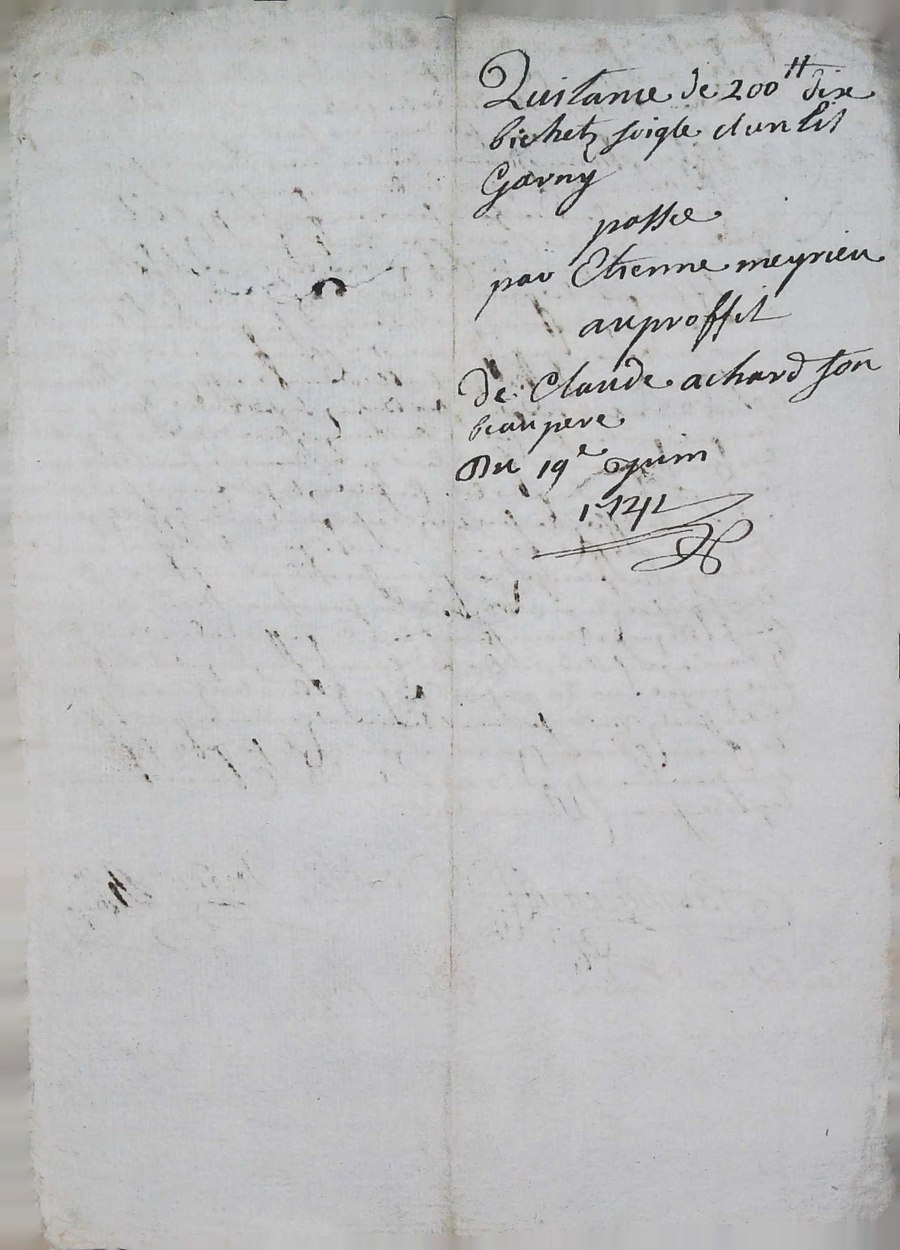 Quitance de 200ᵗᵗ dix
bichetz soigle dun lit
Garny
passée
par Etienne meyrieu
au proffit
de Claude achard son
beau pere
Du 19ᵉ Juin
1741